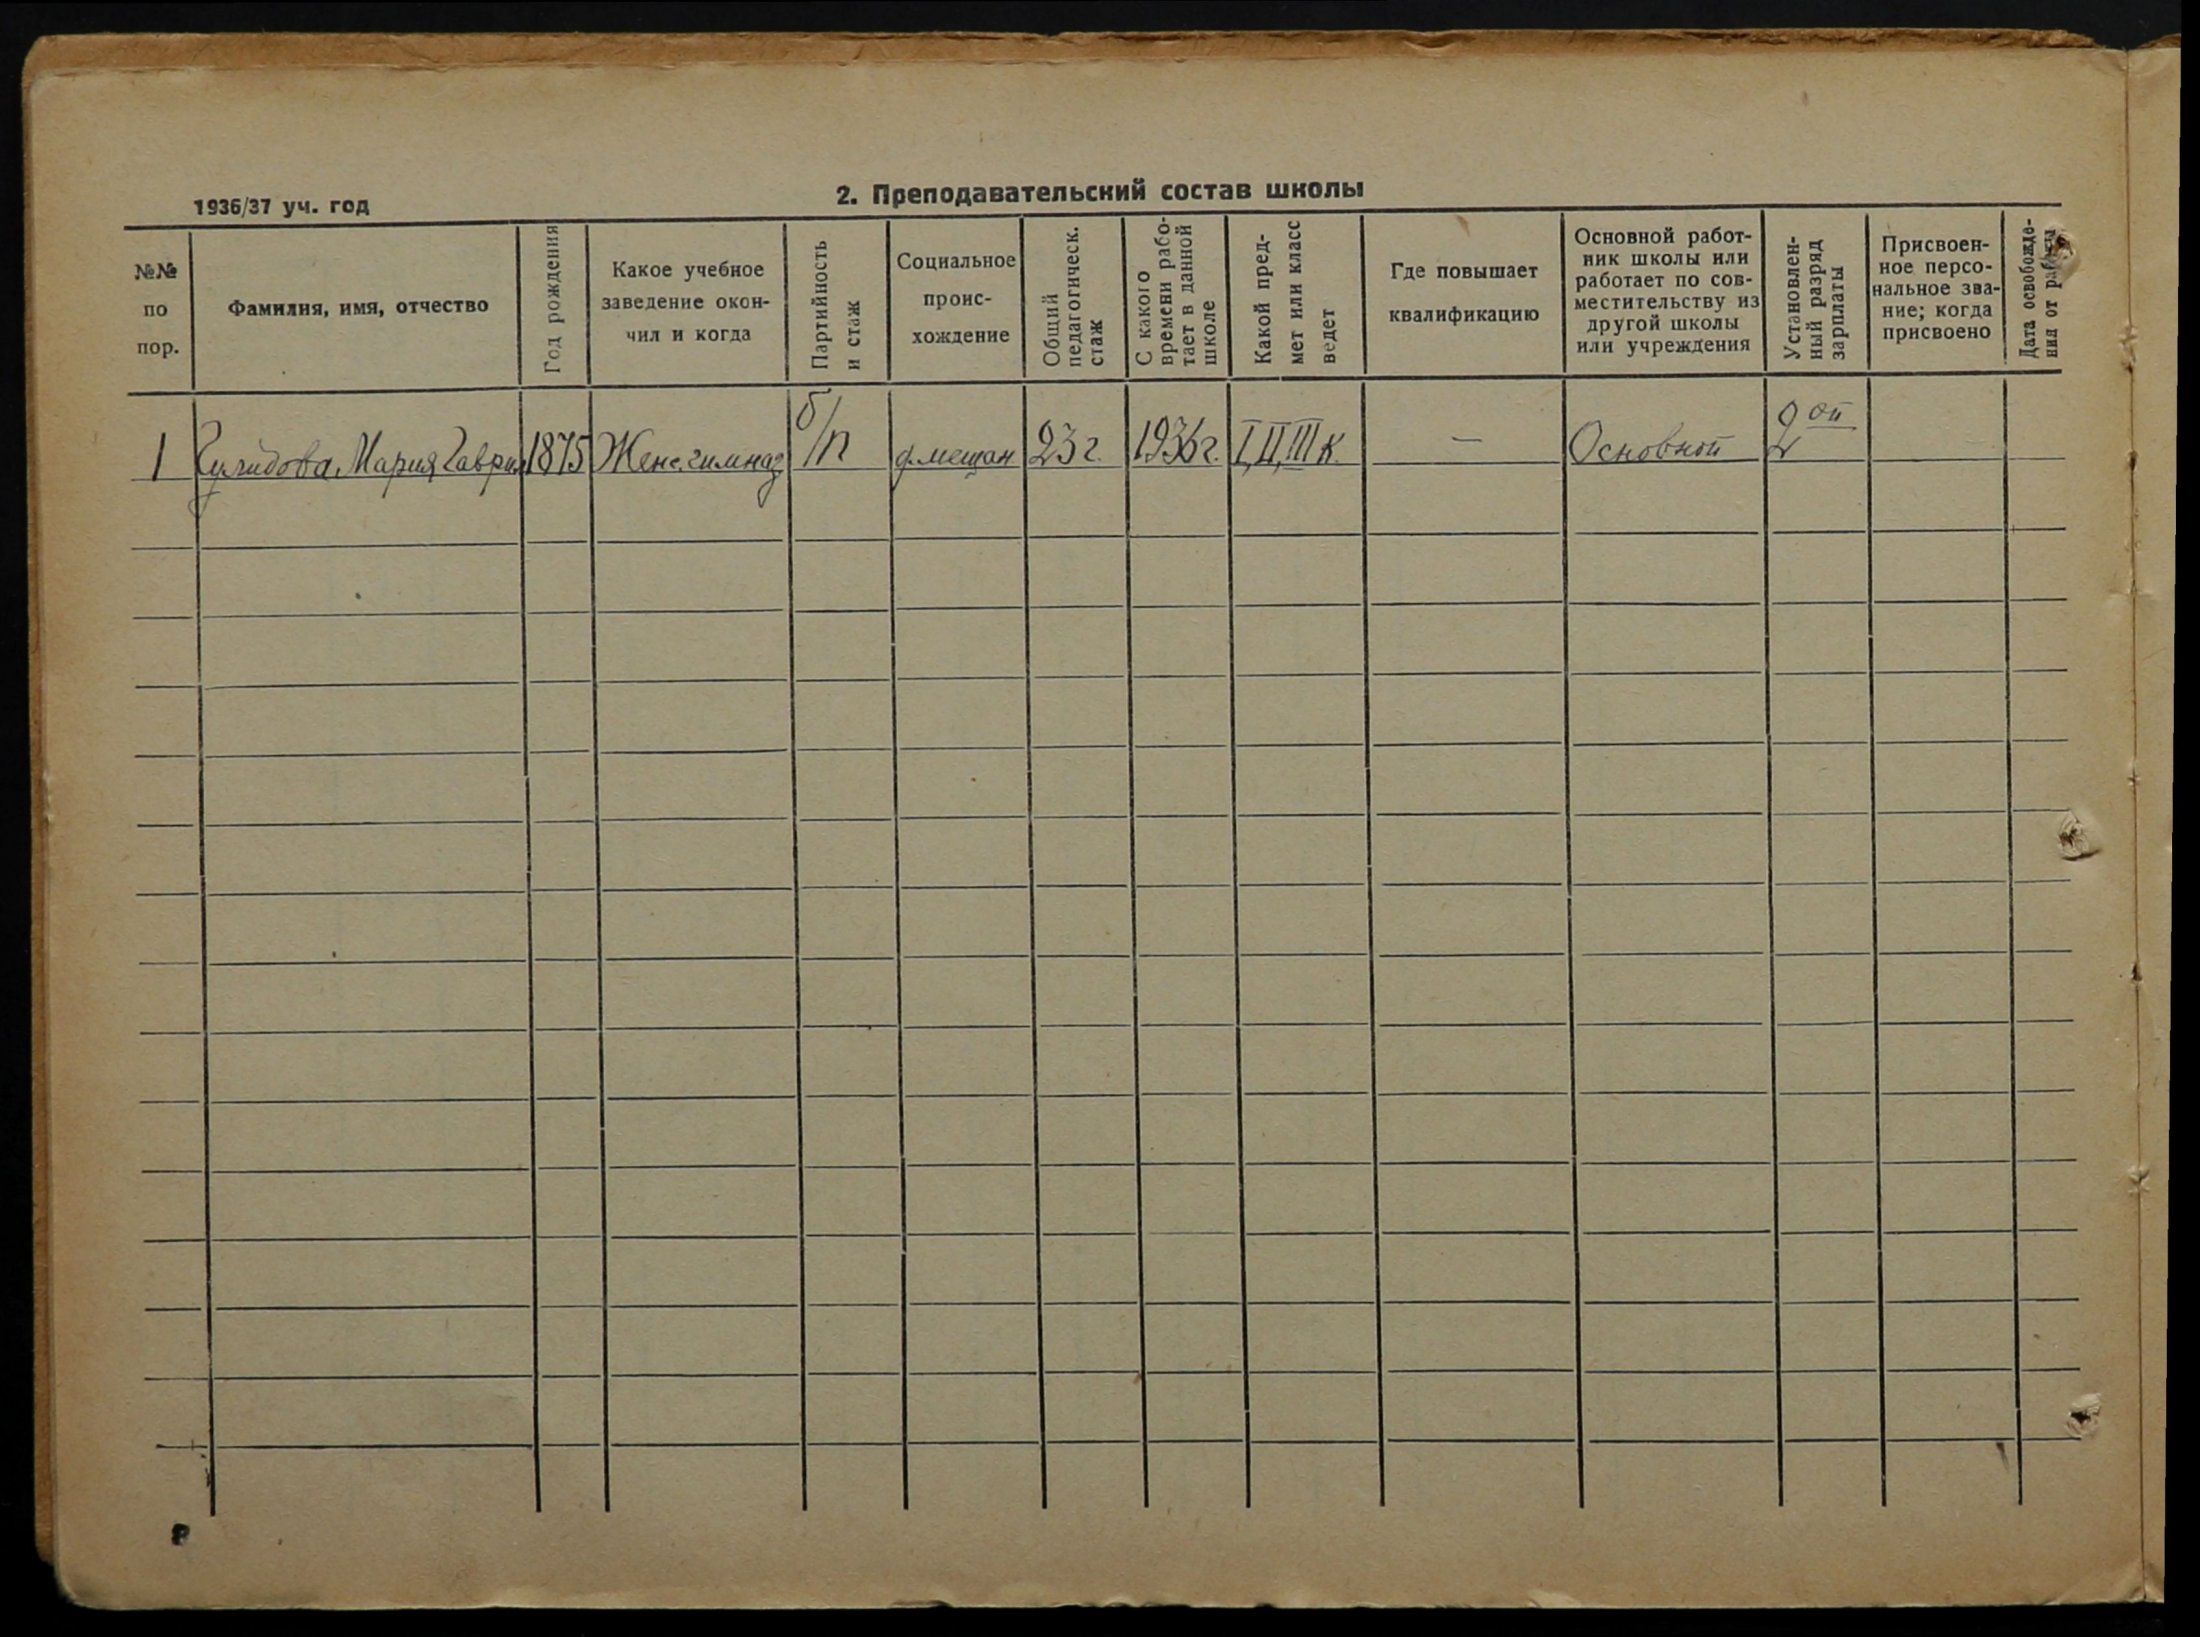 1936/37 уч. год
2. Преподавательский состав школы
№№ по пор.
Фамилия, имя, отчество
Год рождения
Какое учебное заведение окончил и когда
Партийность и стаж
Социальное происхождение
Общий педагогическ. стаж
С какого времени работает в данной школе
Какой предмет или класс ведет
Где повышает квалификацию
Основной работник школы или работает по совместительству из другой школы или учреждения
Установленный разряд зарплаты
Присвоенное персональное звание; когда присвоено
Дата освобождения от работы
1 Мария Гаврил 1875 Женс. гимназ б/п мещан 23 г. 1936 г. I, II, III к. — Основной 2 ой
8